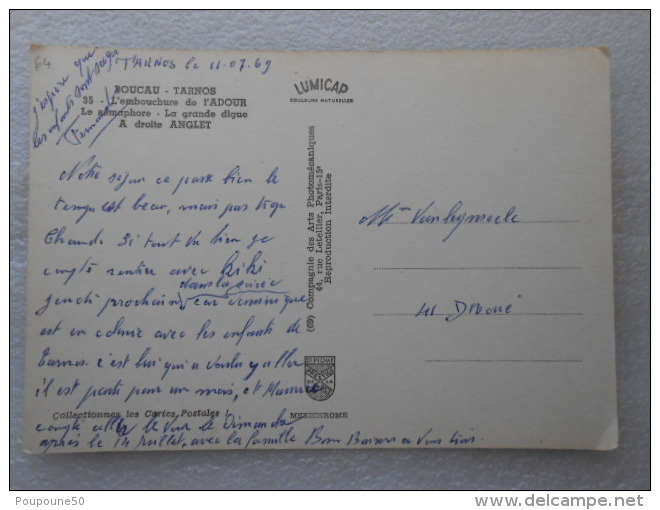 64
j'espère que
les enfants sont sages
Fernande
TARNOS le 11.07.69
BOUCAU - TARNOS
35 - L'embouchure de l'ADOUR
Le sémaphore - La grande digue
A droite ANGLET
LUMICAP
COULEURS NATURELLES
Notre séjour ce passe bien le
temps est beau, mais pas trop
Chaud. Si tout va bien je
compte rentrer avec Kiki
dans la soirée
jeudi prochain car
est en colonie avec les enfants de
Tarnos c'est lui qui a voulu y aller
il est parti pour un mois, et Maurice
compte aller le voir le Dimanche
après le 14 Juillet, avec la famille Bons Baisers a vous tous.
(69) Compagnie des Arts Photomécaniques
44, rue Letellier, Paris-15e
Reproduction interdite
Mme
41
DIPLOME
PRESTIGE
Collectionnez les Cartes Postales
MEXICHROME
Poupoune50
delcampe.net